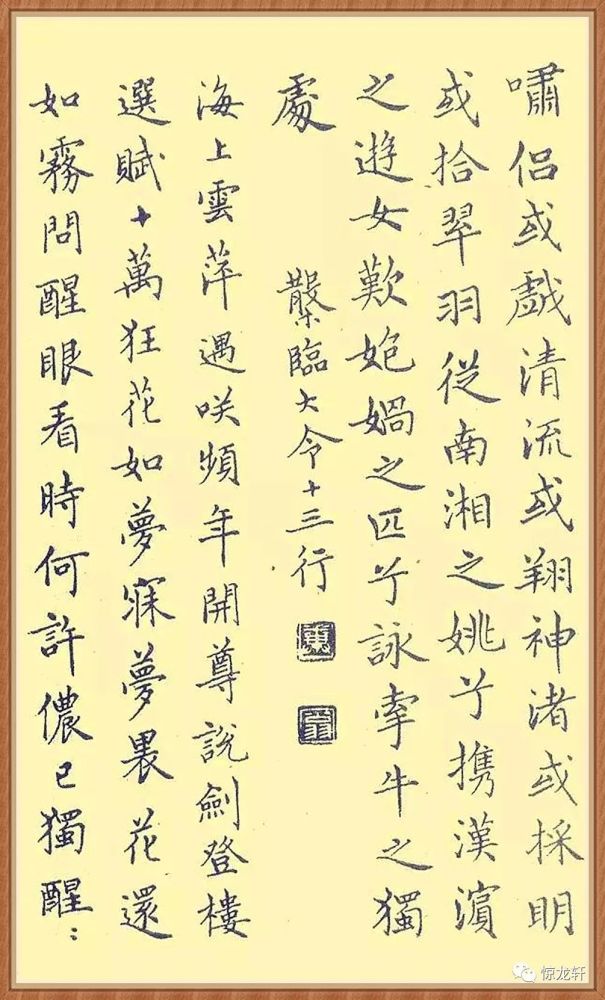 嘯侶或戲清流或翔神渚或採明
或拾翠羽從南湘之姚兮携漢濱
之遊女歎媧之匹兮詠牽牛之獨
處
臨大令十三行
海上雲萍遇咲頻年開尊說劍登樓
選賦十萬狂花如夢寐夢裏花還
如霧問醒眼看時何許儂已獨醒
惊龙轩